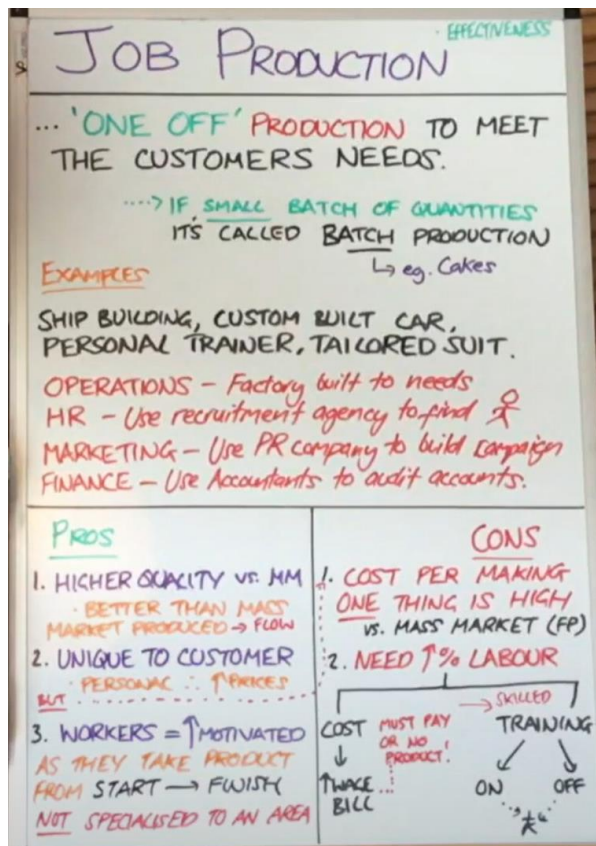 · EFFECTIVENESS
JOB PRODUCTION
... 'ONE OFF' PRODUCTION TO MEET
THE CUSTOMERS NEEDS.
····> IF SMALL BATCH OF QUANTITIES
IT'S CALLED BATCH PRODUCTION
↳ eg. Cakes
EXAMPLES
SHIP BUILDING, CUSTOM BUILT CAR,
PERSONAL TRAINER, TAILORED SUIT.
OPERATIONS – Factory built to needs
HR – Use recruitment agency to find
MARKETING – Use PR company to build campaign
FINANCE – Use Accountants to audit accounts.
PROS
1. HIGHER QUALITY vs. MM
· BETTER THAN MASS
MARKET PRODUCED → FLOW
2. UNIQUE TO CUSTOMER
· PERSONAL ∴ ↑ PRICES
BUT
3. WORKERS = ↑ MOTIVATED
AS THEY TAKE PRODUCT
FROM START → FINISH
NOT SPECIALISED TO AN AREA
CONS
1. COST PER MAKING
ONE THING IS HIGH
vs. MASS MARKET (FP)
2. NEED ↑% LABOUR
→ SKILLED
COST
MUST PAY
OR NO
PRODUCT!
↓
↑ WAGE
BILL
TRAINING
ON OFF